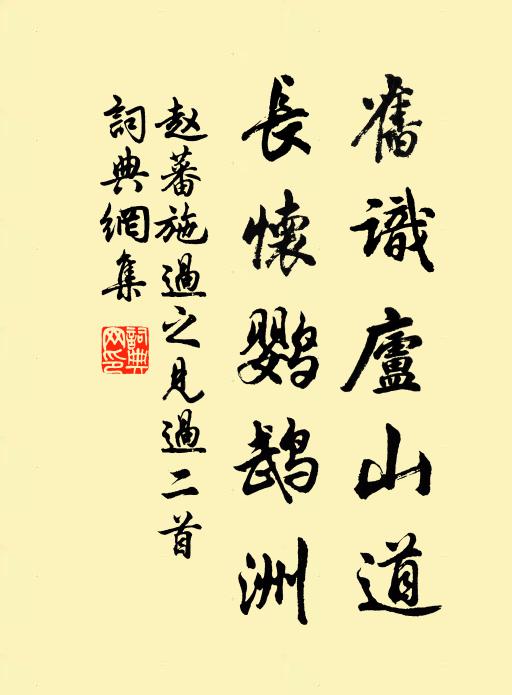 舊識廬山道
長懷鸚鵡洲
赵蕃施過之見過二首
詞典網集
詞典網印